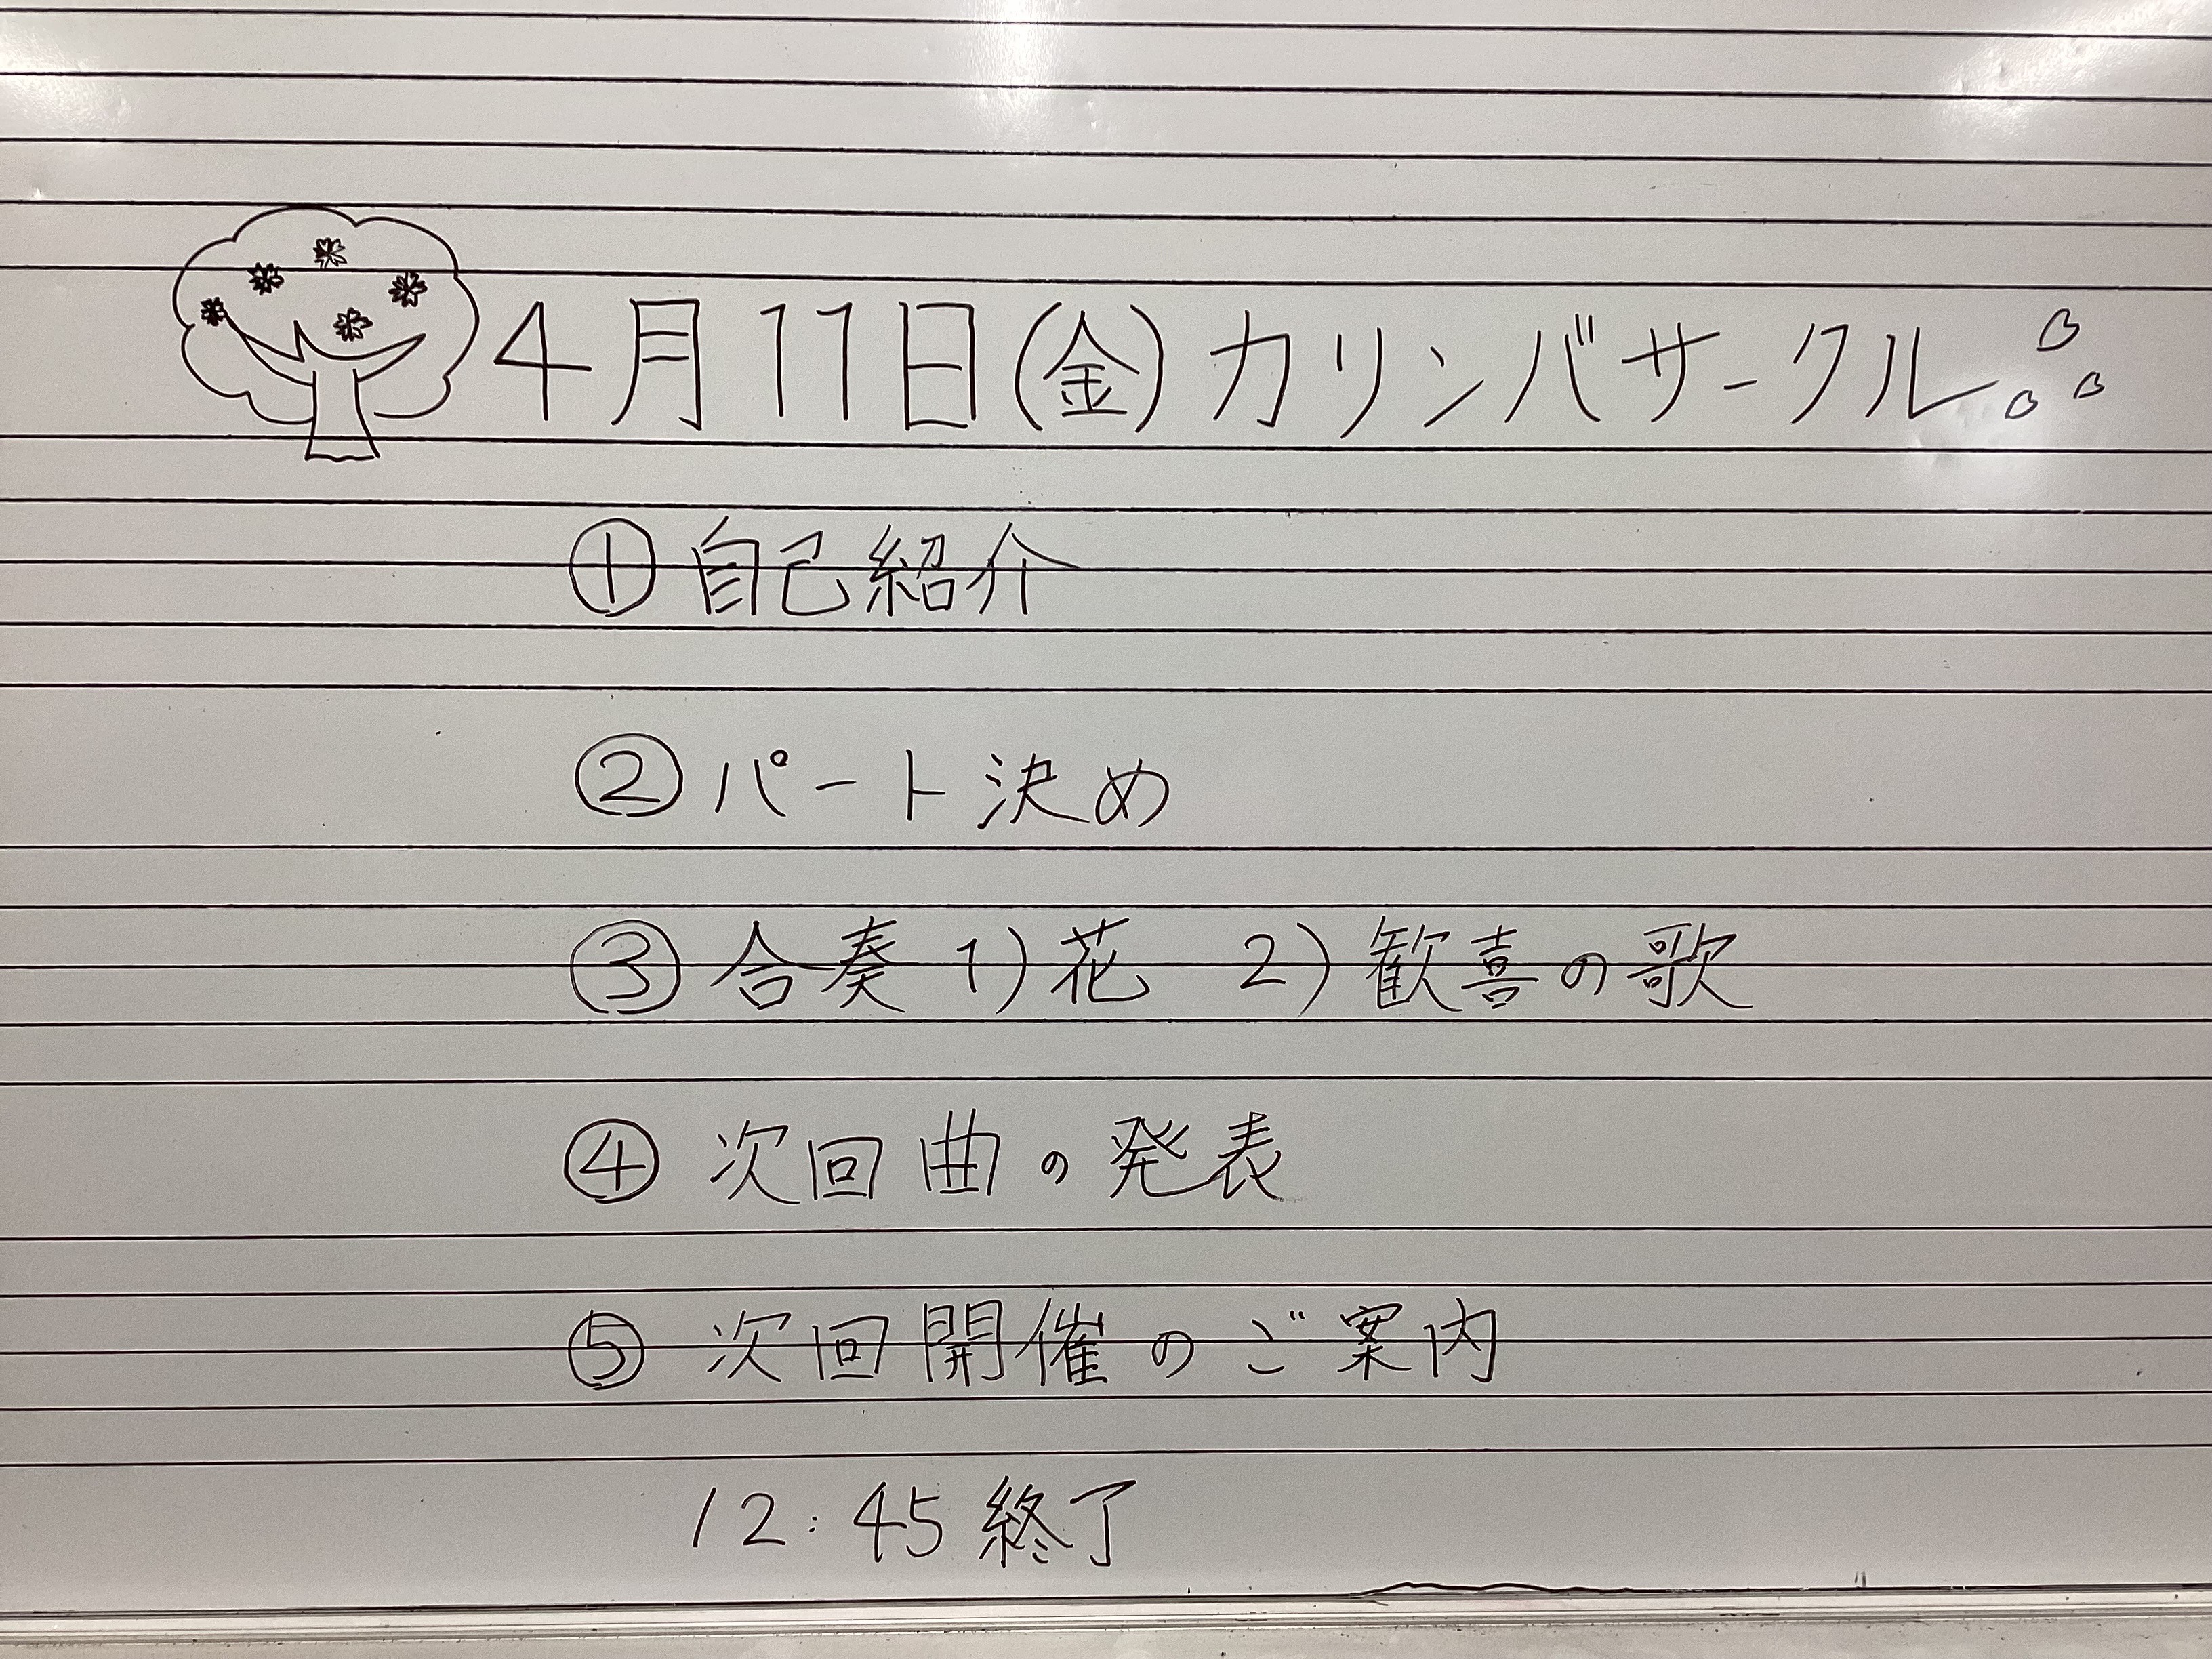 4月11日(金)カリンバサークル
①自己紹介
②パート決め
③合奏 1)花 2)歓喜の歌
④次回曲の発表
⑤次回開催のご案内
12:45終了